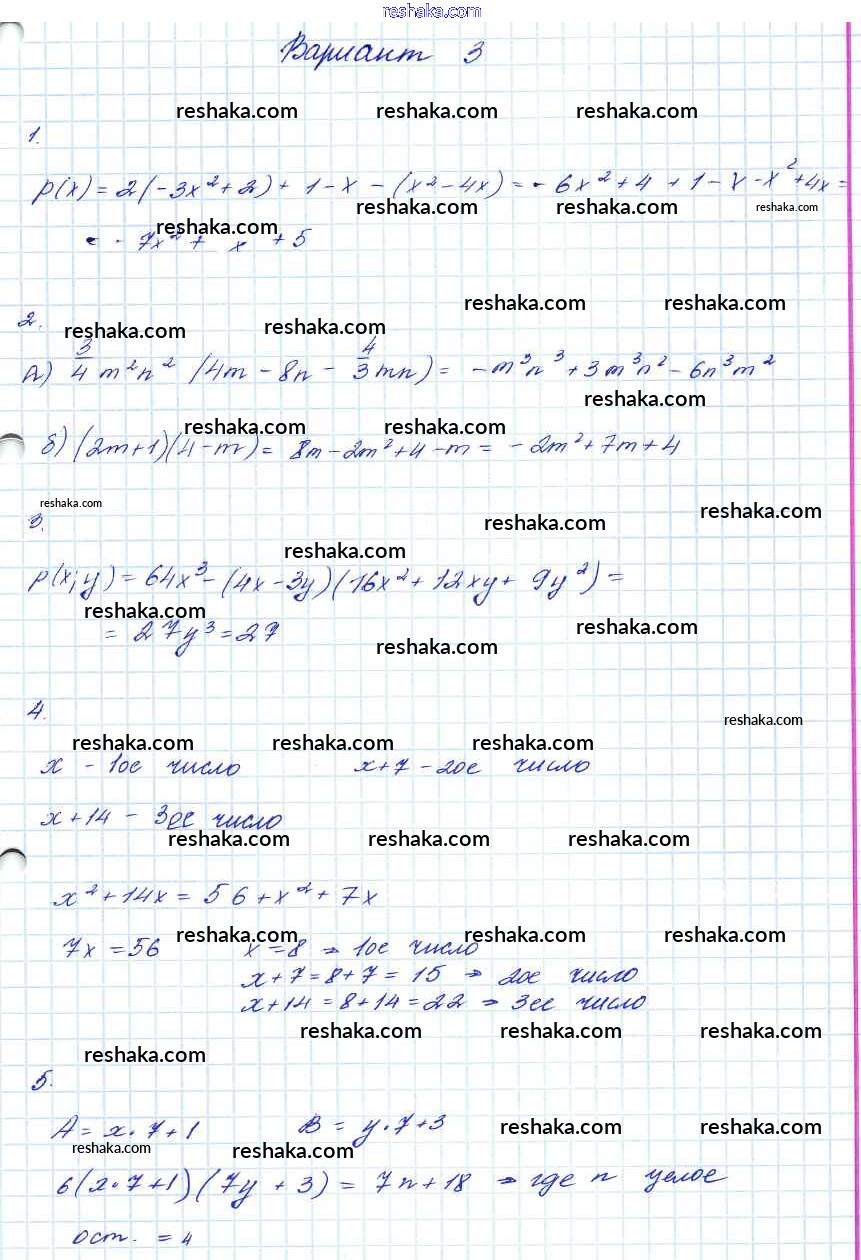 reshaka.com
Вариант 3
reshaka.com reshaka.com reshaka.com
1.
p(x) = 2(-3x²+2) + 1-x - (x²-4x) = - 6x²+4 + 1-x-x²+4x =
reshaka.com reshaka.com reshaka.com
reshaka.com
= - 7x² + x + 5
reshaka.com reshaka.com
2.
reshaka.com reshaka.com
А) 3/4 m²n² (4m - 8n - 4/3 mn) = -m³n³+3m³n²-6n³m²
reshaka.com
reshaka.com reshaka.com
б) (2m+1)(4-m) = 8m-2m²+4-m = -2m²+7m+4
reshaka.com
reshaka.com reshaka.com
3.
reshaka.com
p(x;y) = 64x³-(4x-3y)(16x²+12xy+ 9y²) =
reshaka.com
= 27y³=27
reshaka.com reshaka.com
4.
reshaka.com
reshaka.com reshaka.com reshaka.com
x - 1ое число x+7 - 2ое число
x+14 - 3ее число
reshaka.com reshaka.com reshaka.com
x²+14x = 56+x²+7x
reshaka.com reshaka.com reshaka.com
7x = 56 x = 8 → 1ое число
x+7=8+7= 15 → 2ое число
x+14=8+14=22 → 3ее число
reshaka.com reshaka.com reshaka.com
reshaka.com
5.
A = x·7+1 B = y·7+3
reshaka.com reshaka.com
reshaka.com reshaka.com
6(x·7+1)(7y+3) = 7n+18 → где n целое
ост. = 4